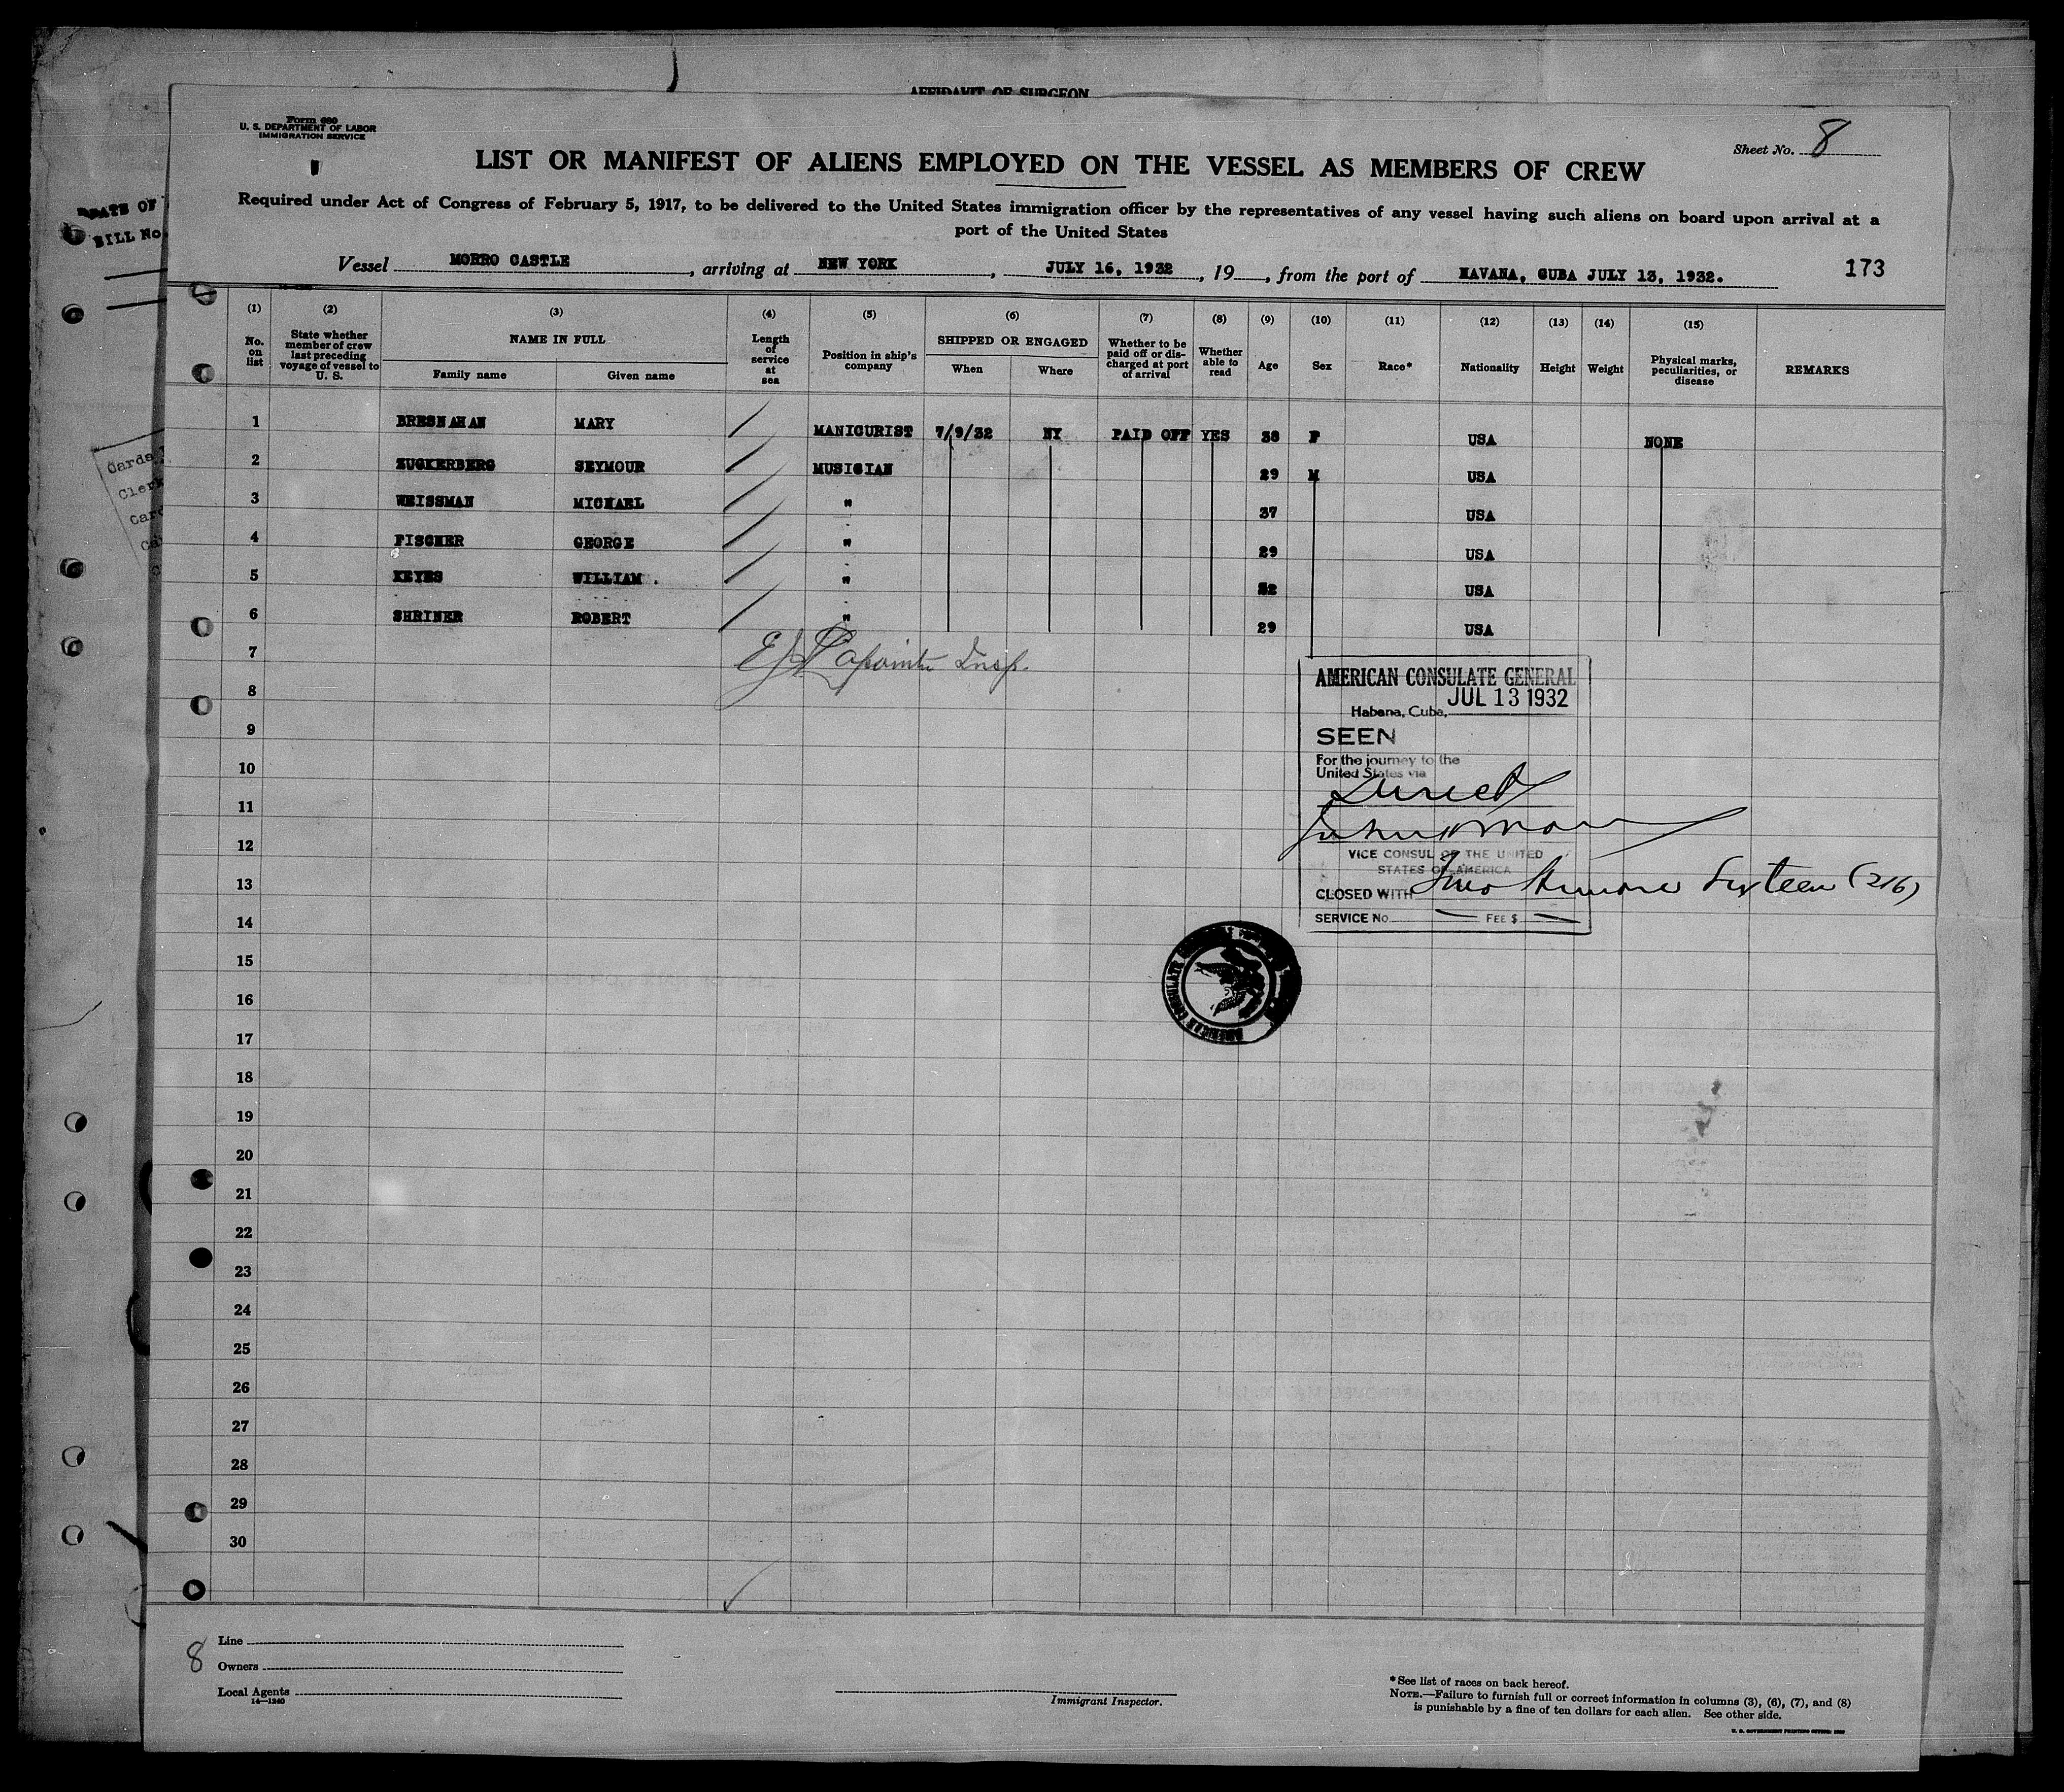 AFFIDAVIT OF SURGEON
Form 680
U. S. DEPARTMENT OF LABOR
IMMIGRATION SERVICE
Sheet No. 8
LIST OR MANIFEST OF ALIENS EMPLOYED ON THE VESSEL AS MEMBERS OF CREW
Required under Act of Congress of February 5, 1917, to be delivered to the United States immigration officer by the representatives of any vessel having such aliens on board upon arrival at a
port of the United States
Vessel MORRO CASTLE, arriving at NEW YORK, JULY 16, 1932, 19, from the port of HAVANA, CUBA JULY 13, 1932. 173
(1) (2) (3) (4) (5) (6) (7) (8) (9) (10) (11) (12) (13) (14) (15)
No. on list
State whether member of crew last preceding voyage of vessel to U. S.
NAME IN FULL
Family name Given name
Length of service at sea
Position in ship's company
SHIPPED OR ENGAGED
When Where
Whether to be paid off or discharged at port of arrival
Whether able to read
Age Sex Race* Nationality Height Weight
Physical marks, peculiarities, or disease
REMARKS
1 BRESNAHAN MARY MANICURIST 7/9/32 NY PAID OFF YES 38 F USA NONE
2 ZUCKERBERG SEYMOUR MUSICIAN 29 M USA
3 WEISSMAN MICHAEL " 37 USA
4 FISCHER GEORGE " 29 USA
5 KEYES WILLIAM . " USA
6 SHRINER ROBERT " 29 USA
7
8
9
10
11
12
13
14
15
16
17
18
19
20
21
22
23
24
25
26
27
28
29
30
Lapointe Insp.
AMERICAN CONSULATE GENERAL
JUL 13 1932
Habana, Cuba,
SEEN
For the journey to the
United States via
Direct
VICE CONSUL OF THE UNITED
STATES OF AMERICA
CLOSED WITH Two Hundred Sixteen (216)
SERVICE No. — FEE $ —
8
Line
Owners
Local Agents
14—1240
Immigrant Inspector.
*See list of races on back hereof.
NOTE.—Failure to furnish full or correct information in columns (3), (6), (7), and (8)
is punishable by a fine of ten dollars for each alien. See other side.